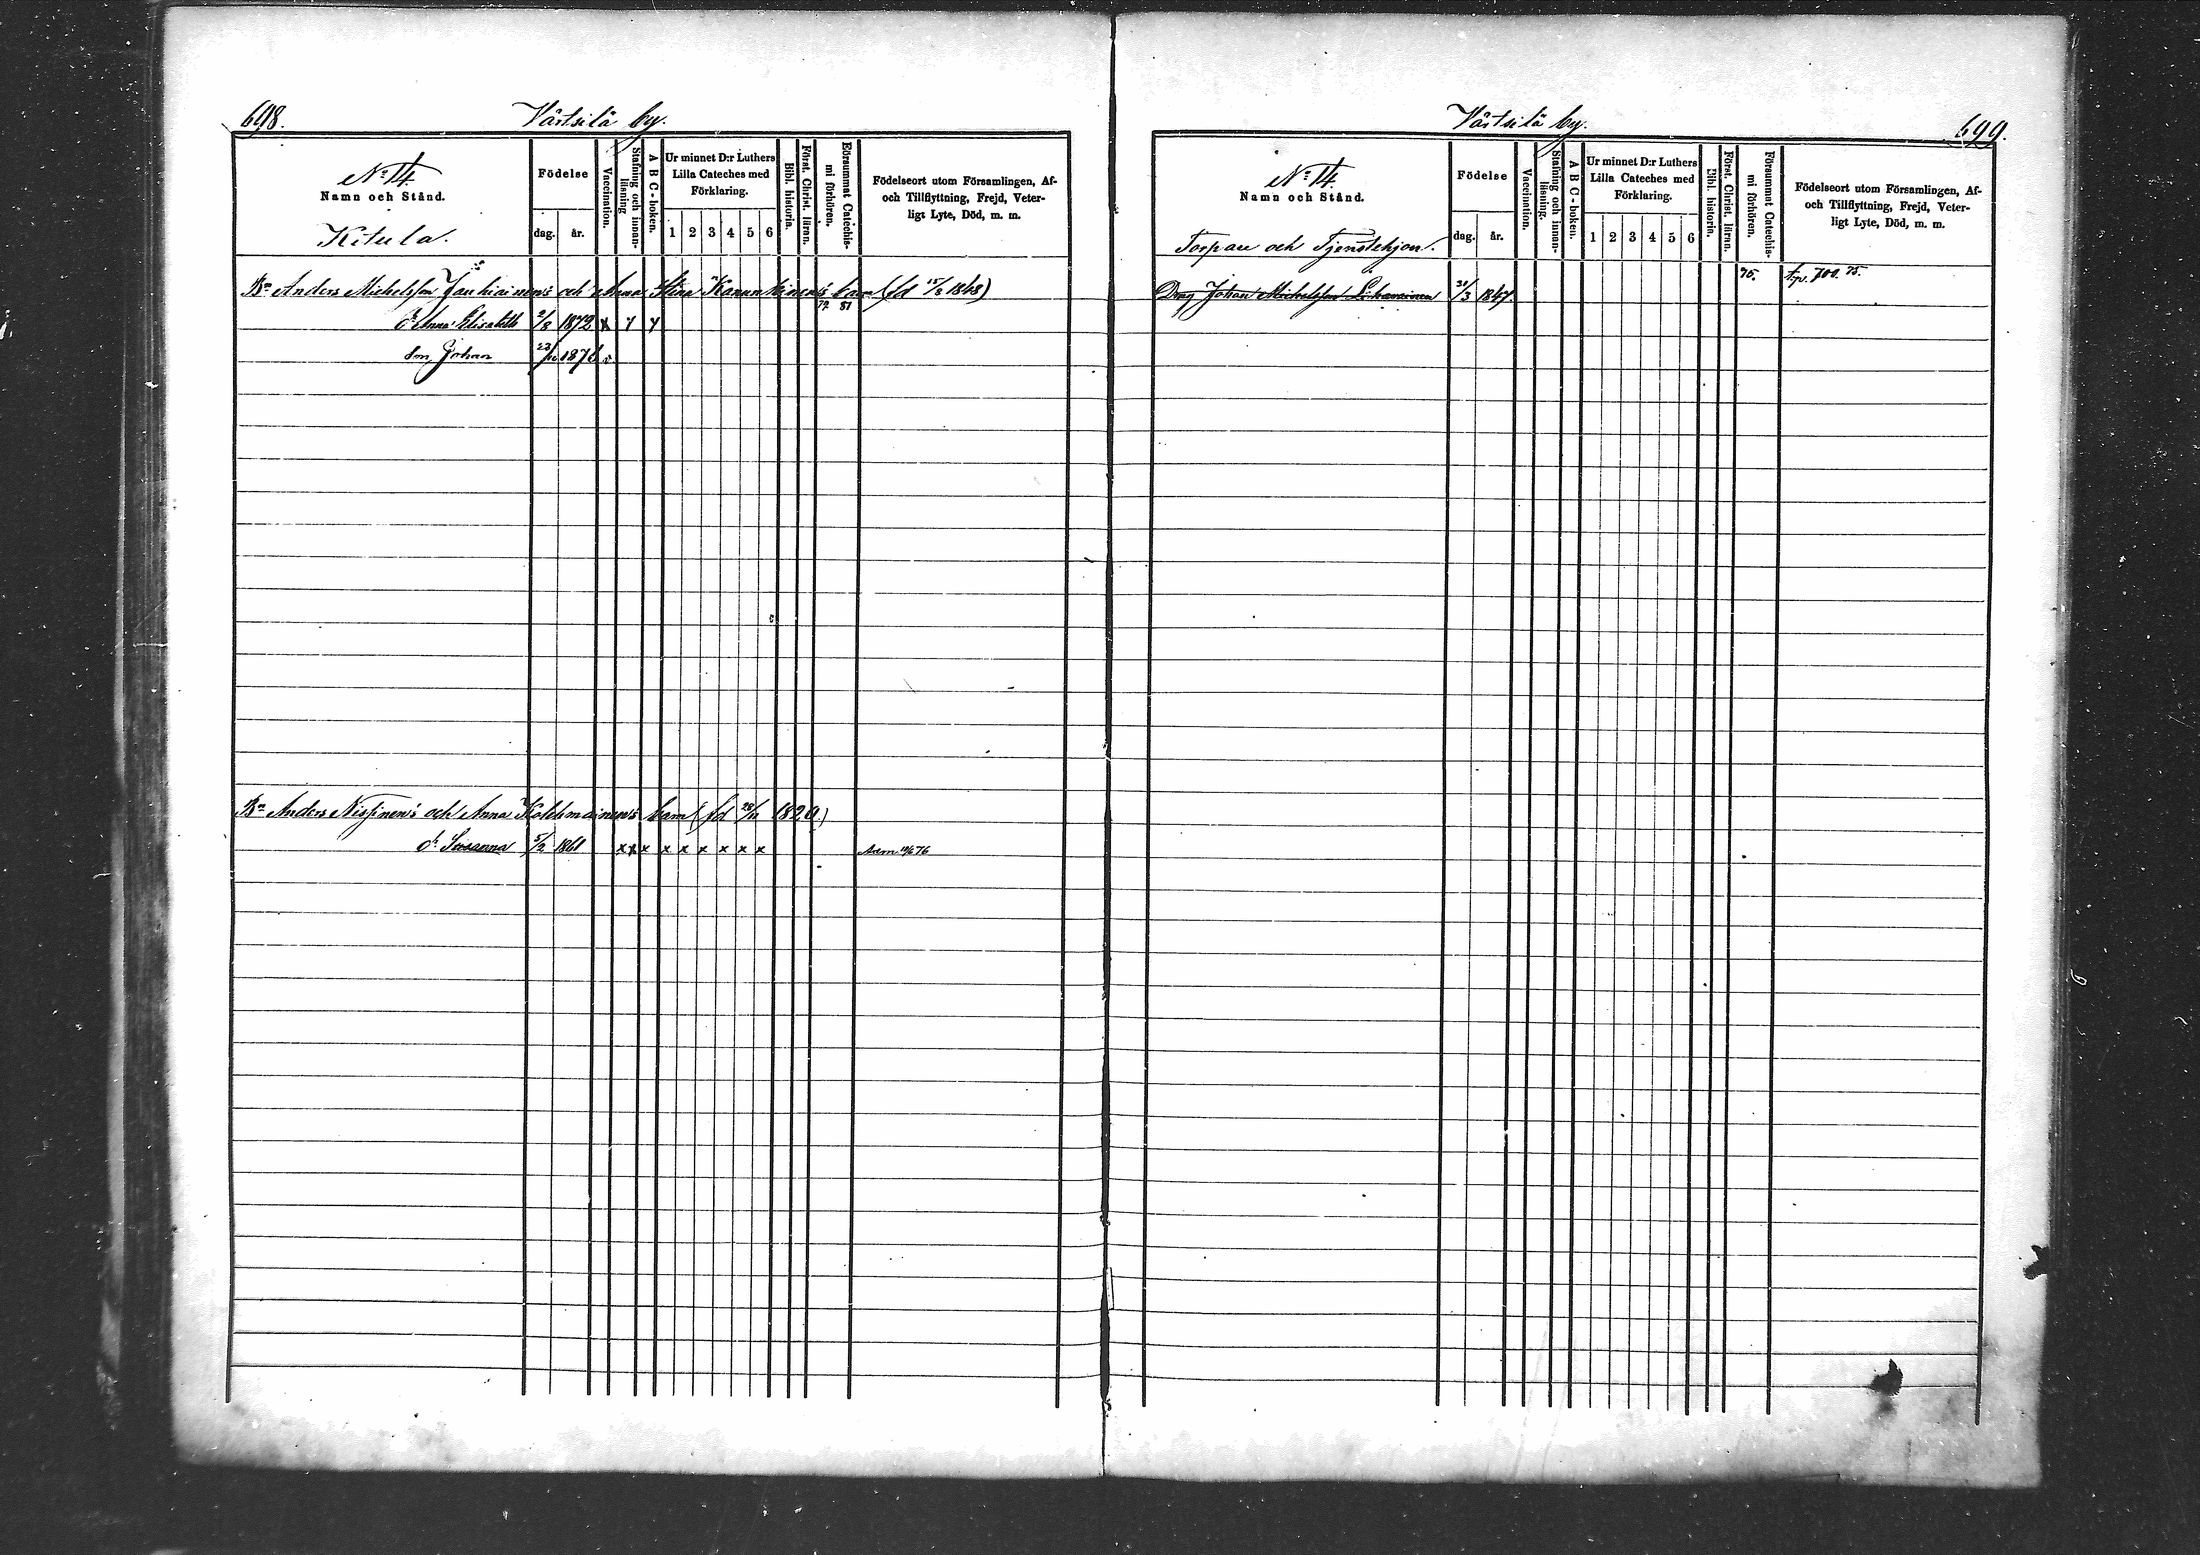 698. Värtsilä by.
No 14.
Namn och Stånd.
Kitula.
Födelse
dag. år.
Vaccination.
Stafning och innan-
läsning
A B C-boken.
Ur minnet D:r Luthers
Lilla Cateches med
Förklaring.
1 2 3 4 5 6
Bibl. historia.
Först. Christ. läran.
Försummat Catechis-
mi förhören.
Födelseort utom Församlingen, Af-
och Tillflyttning, Frejd, Veter-
ligt Lyte, Död, m. m.
Bn Anders Michelsson Jauhiainen's och Anna Stina barn (fd 15/8 1848)
77 81
dr Anna Elisabeth 2/8 1872 x y y
son Johan 23/ 187
Bn Anders Nissinen's och Anna Kolehmainen's barn (fd 28/11 1820)
dr Susanna 5/2 1861 x x x x x x x x x Adm 76
Värtsilä by. 699.
No 14.
Namn och Stånd.
Torpare och Tjenstehjon.
Födelse
dag. år.
Vaccination.
Stafning och innan-
läsning.
A B C-boken.
Ur minnet D:r Luthers
Lilla Cateches med
Förklaring.
1 2 3 4 5 6
Bibl. historia.
Först. Christ. läran.
Försummat Catechis-
mi förhören.
Födelseort utom Församlingen, Af-
och Tillflyttning, Frejd, Veter-
ligt Lyte, Död, m. m.
Dräng Johan Michelsson 21/3 1847 75. 700. 75.